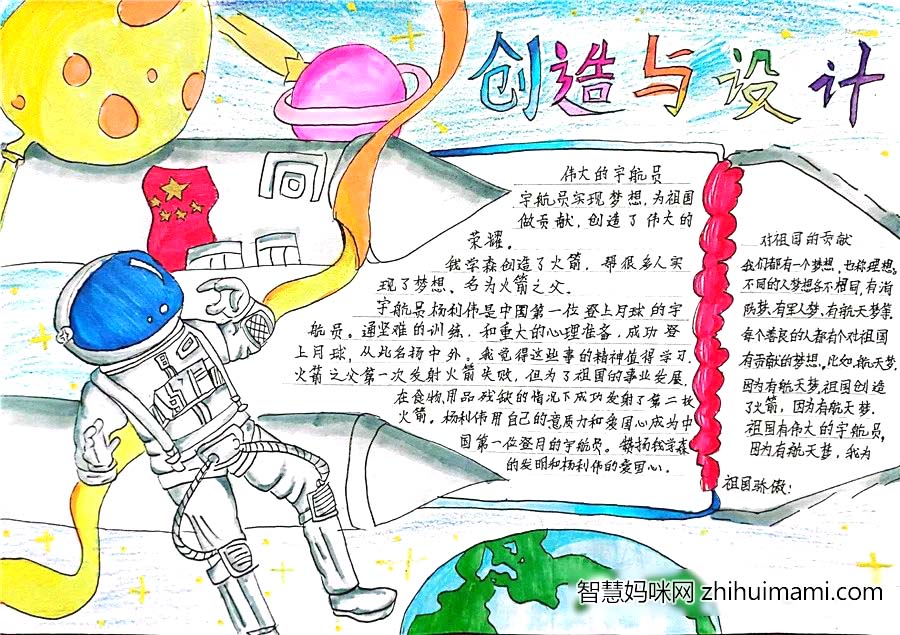 创造与设计
伟大的宇航员
宇航员实现梦想,为祖国
做贡献,创造了伟大的
荣耀。
我学森创造了火箭,帮很多人实
现了梦想、名为火箭之父。
宇航员杨利伟是中国第一位登上月球的宇
航员。通坚难的训练,和重大的心理准备,成功登
上月球,从此名扬中外。我觉得这些事的精神值得学习.
火箭之父第一次发射火箭失败,但为了祖国的事业发展.
在食物用品残缺的情况下成功发射了第二枚
火箭。杨利伟用自己的意质力和爱国心成为中
国第一位登月的宇航员。赞扬我学森
的发明和杨利伟的爱国心.
对祖国的贡献
我们都有一个梦想,也称理想。
不同的人梦想各不相同,有消
防梦、有军人梦、有航天梦等
每个善良的人都有个对祖国
有贡献的梦想,比如,航天梦.
因为有航天梦,祖国创造
了火箭,因为有航天梦.
祖国有伟大的宇航员,
因为有航天梦,我为
祖国骄傲!
智慧妈咪网 zhihuimami.com